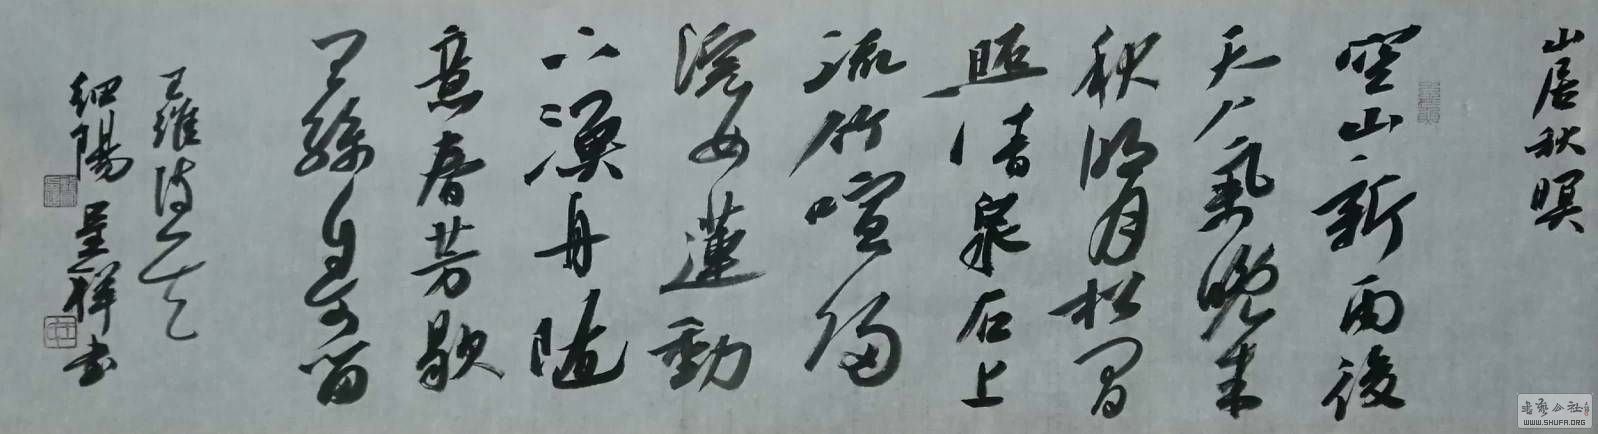 山居秋暝
空山新雨後
天氣晚来
秋明月松間
照清泉石上
流竹喧歸
浣女蓮動
下漁舟隨
意春芳歇
王孫自可留
王維詩一首
細陽呈祥书
书艺公社
WWW.SHUFA.ORG